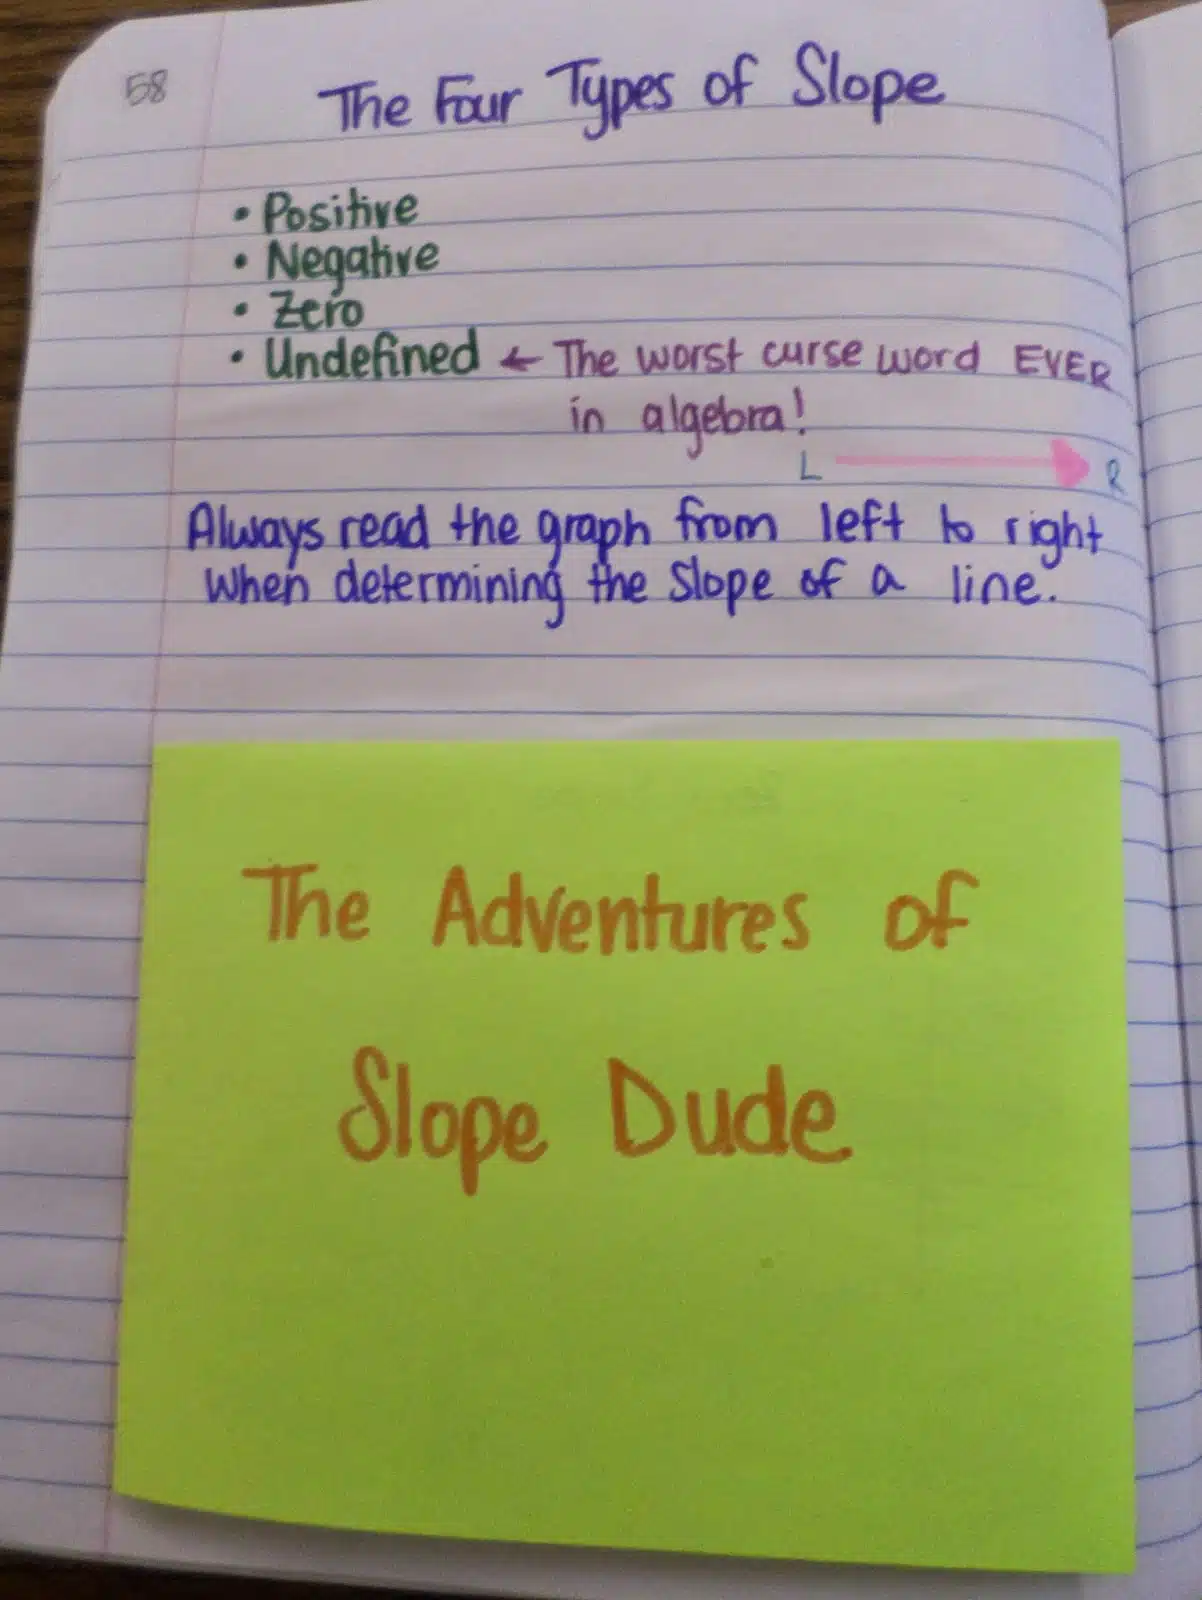 58
The Four Types of Slope
• Positive
• Negative
• Zero
• Undefined ← The worst curse word EVER
in algebra!
L → R
Always read the graph from left to right
when determining the slope of a line.
The Adventures of
Slope Dude